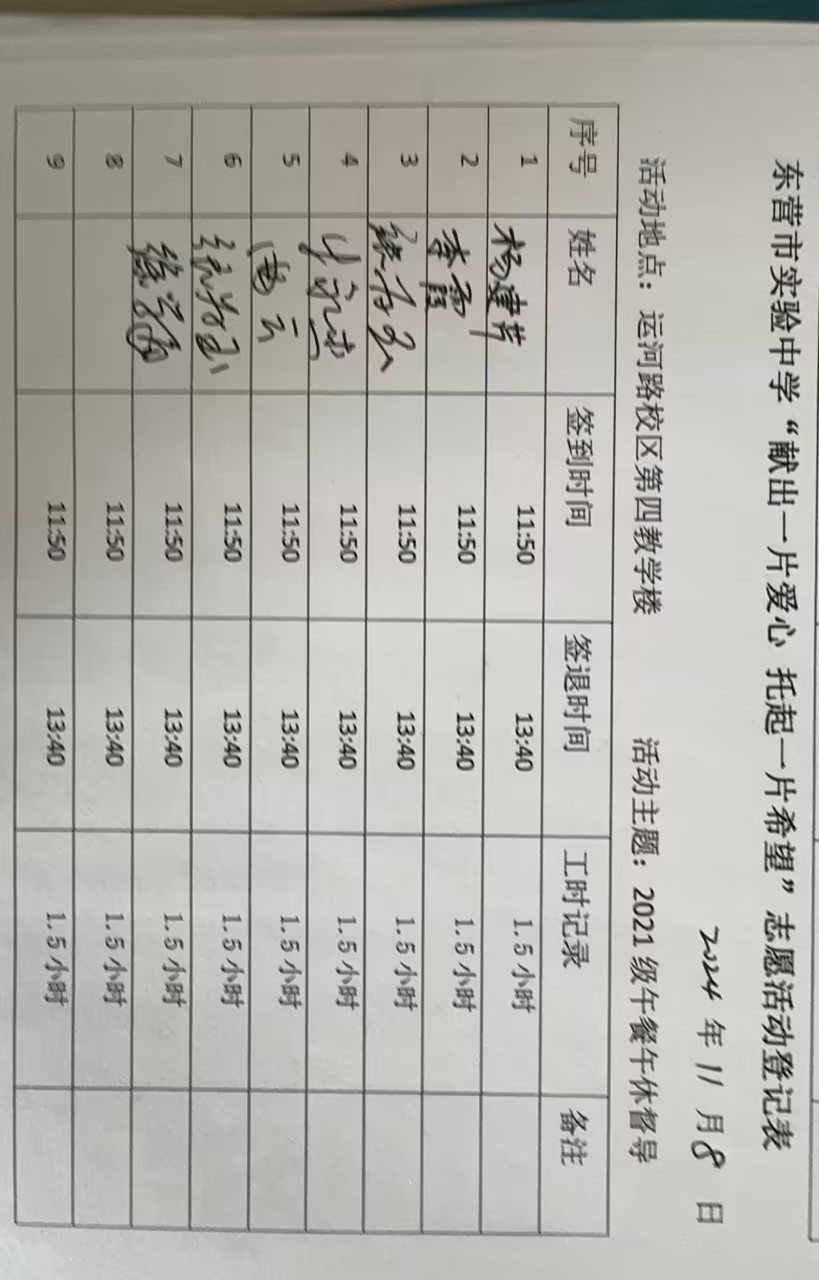 东营市实验中学“献出一片爱心 托起一片希望”志愿活动登记表
2024 年 11 月 8 日
活动地点：运河路校区第四教学楼 活动主题：2021 级午餐午休督导
序号 姓名 签到时间 签退时间 工时记录 备注
1 杨建芳 11:50 13:40 1.5 小时
2 李霞 11:50 13:40 1.5 小时
3 11:50 13:40 1.5 小时
4 11:50 13:40 1.5 小时
5 11:50 13:40 1.5 小时
6 11:50 13:40 1.5 小时
7 11:50 13:40 1.5 小时
8 11:50 13:40 1.5 小时
9 11:50 13:40 1.5 小时